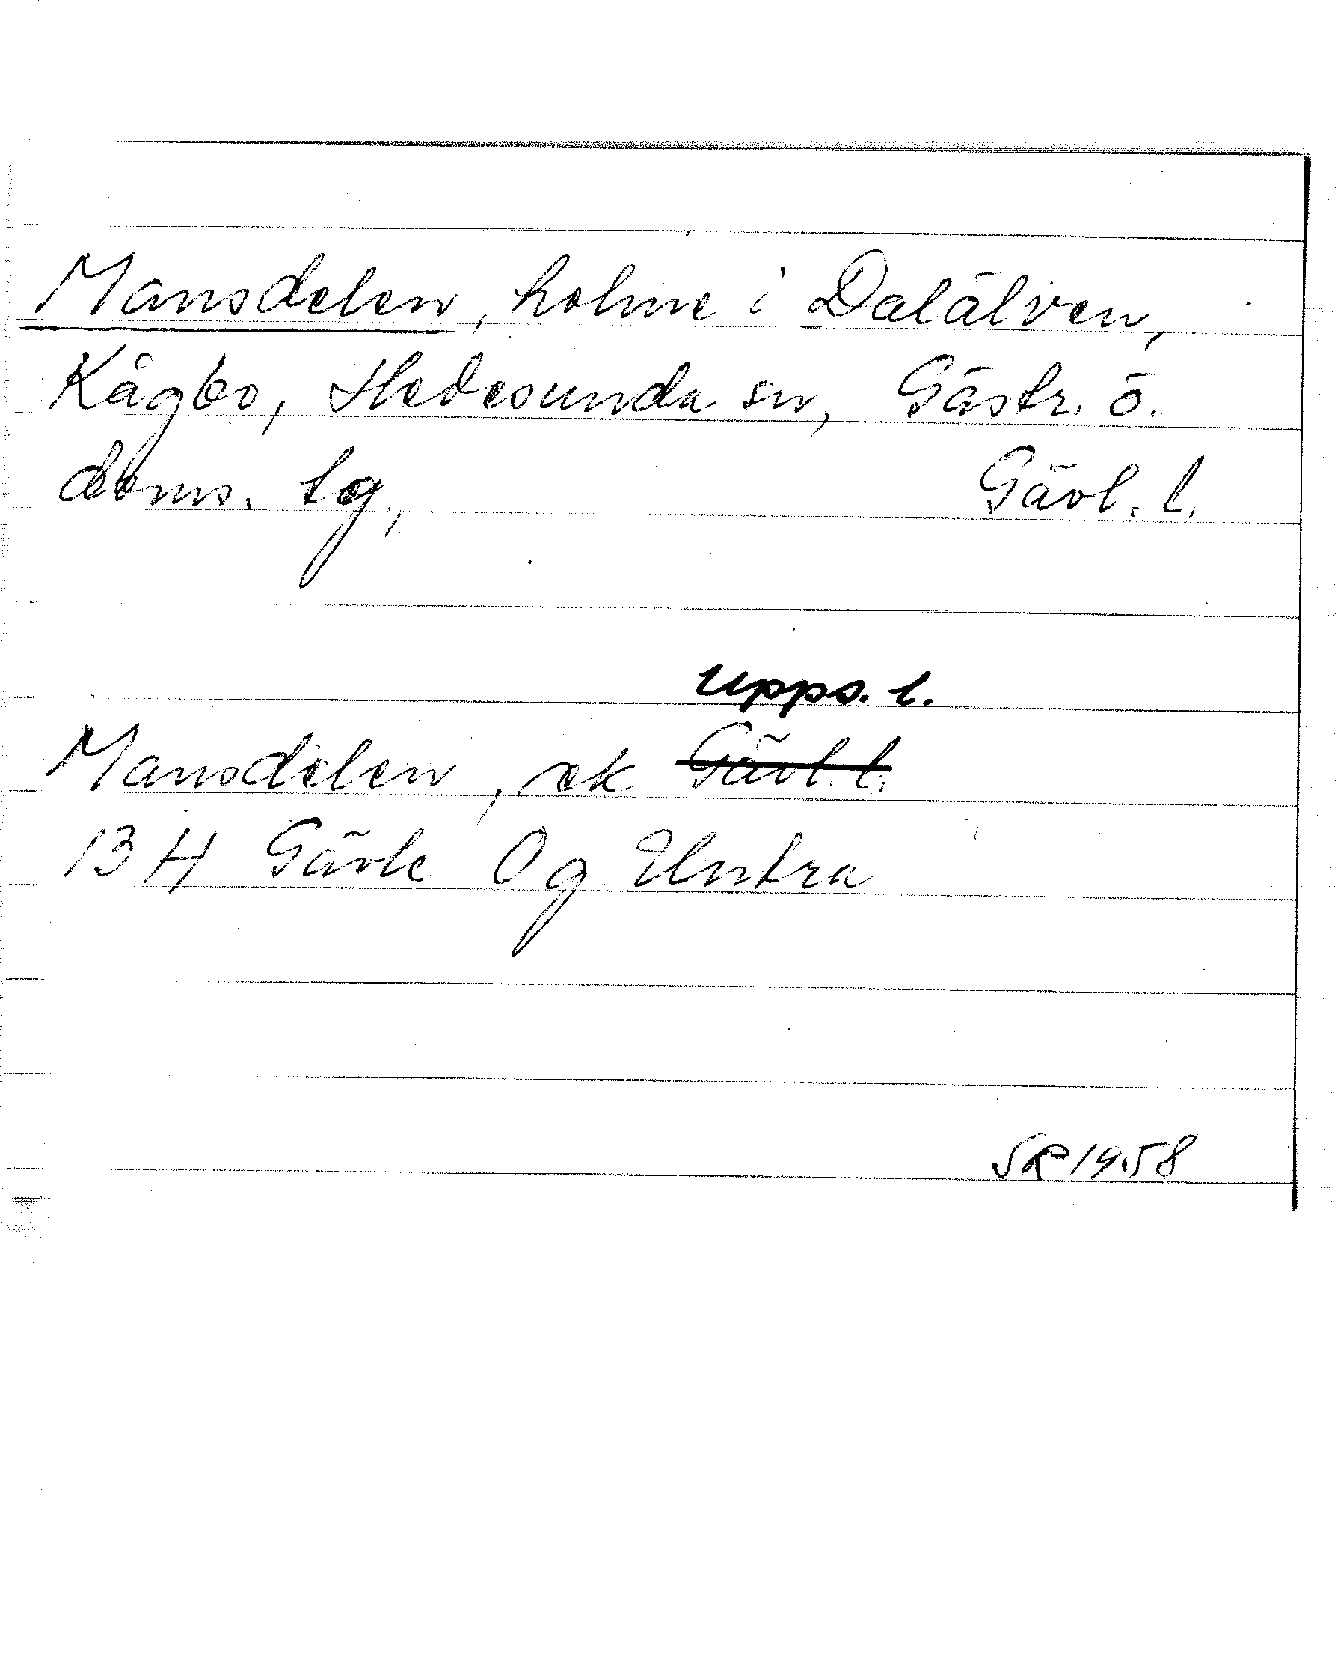 Mansdelen, holme i Dalälven,
Kågbo, Hedesunda sn, Gästr. ö.
doms. tg, Gävl. l.
Upps. l.
Mansdelen, ek. Gävl. l.
13 H Gävle Og Untra
SR 1958